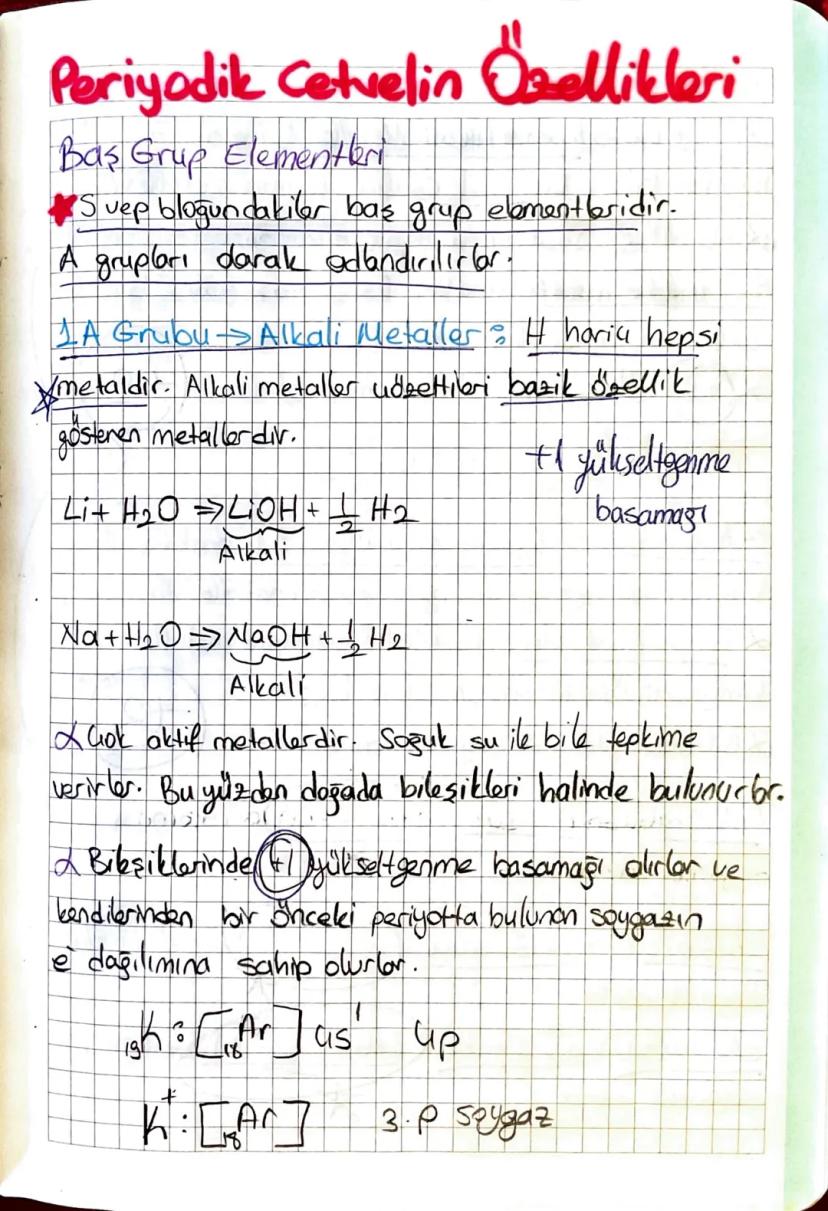 Periyodik Cetvelin Özellikleri
Baş Grup Elementleri
★ S ve p bloğundakiler baş grup elementleridir.
A grupları olarak adlandırılırlar.
1A Grubu → Alkali Metaller : H hariç hepsi
metaldir. Alkali metaller çözeltileri bazik özellik
gösteren metallerdir.
+1 yükseltgenme
basamağı
Li + H2O ⇒ LiOH + 1/2 H2
Alkali
Na + H2O ⇒ NaOH + 1/2 H2
Alkali
α Çok aktif metallerdir. Soğuk su ile bile tepkime
verirler. Bu yüzden doğada bileşikleri halinde bulunurlar.
α Bileşiklerinde +1 yükseltgenme basamağı alırlar ve
kendilerinden bir önceki periyotta bulunan soygazın
e⁻ dağılımına sahip olurlar.
₁₉K : [₁₈Ar] 4s¹ 4p
K⁺ : [₁₈Ar] 3.p soygaz